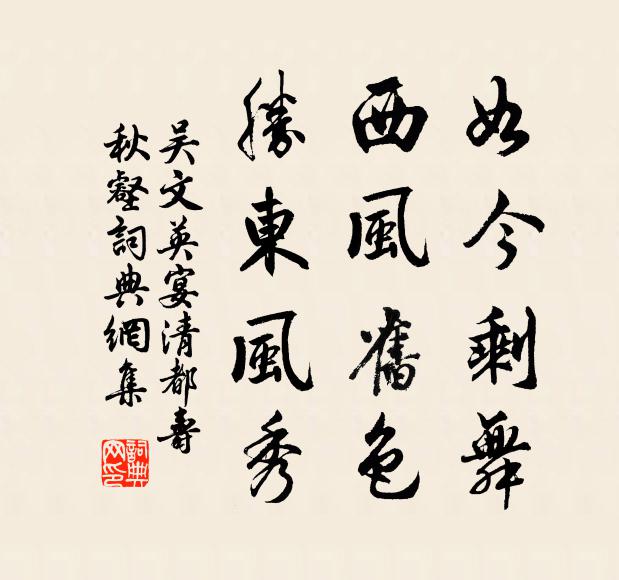 如今剩舞
西風舊色
勝東風秀
吴文英宴清都壽
秋壑詞典網集
詞典網印